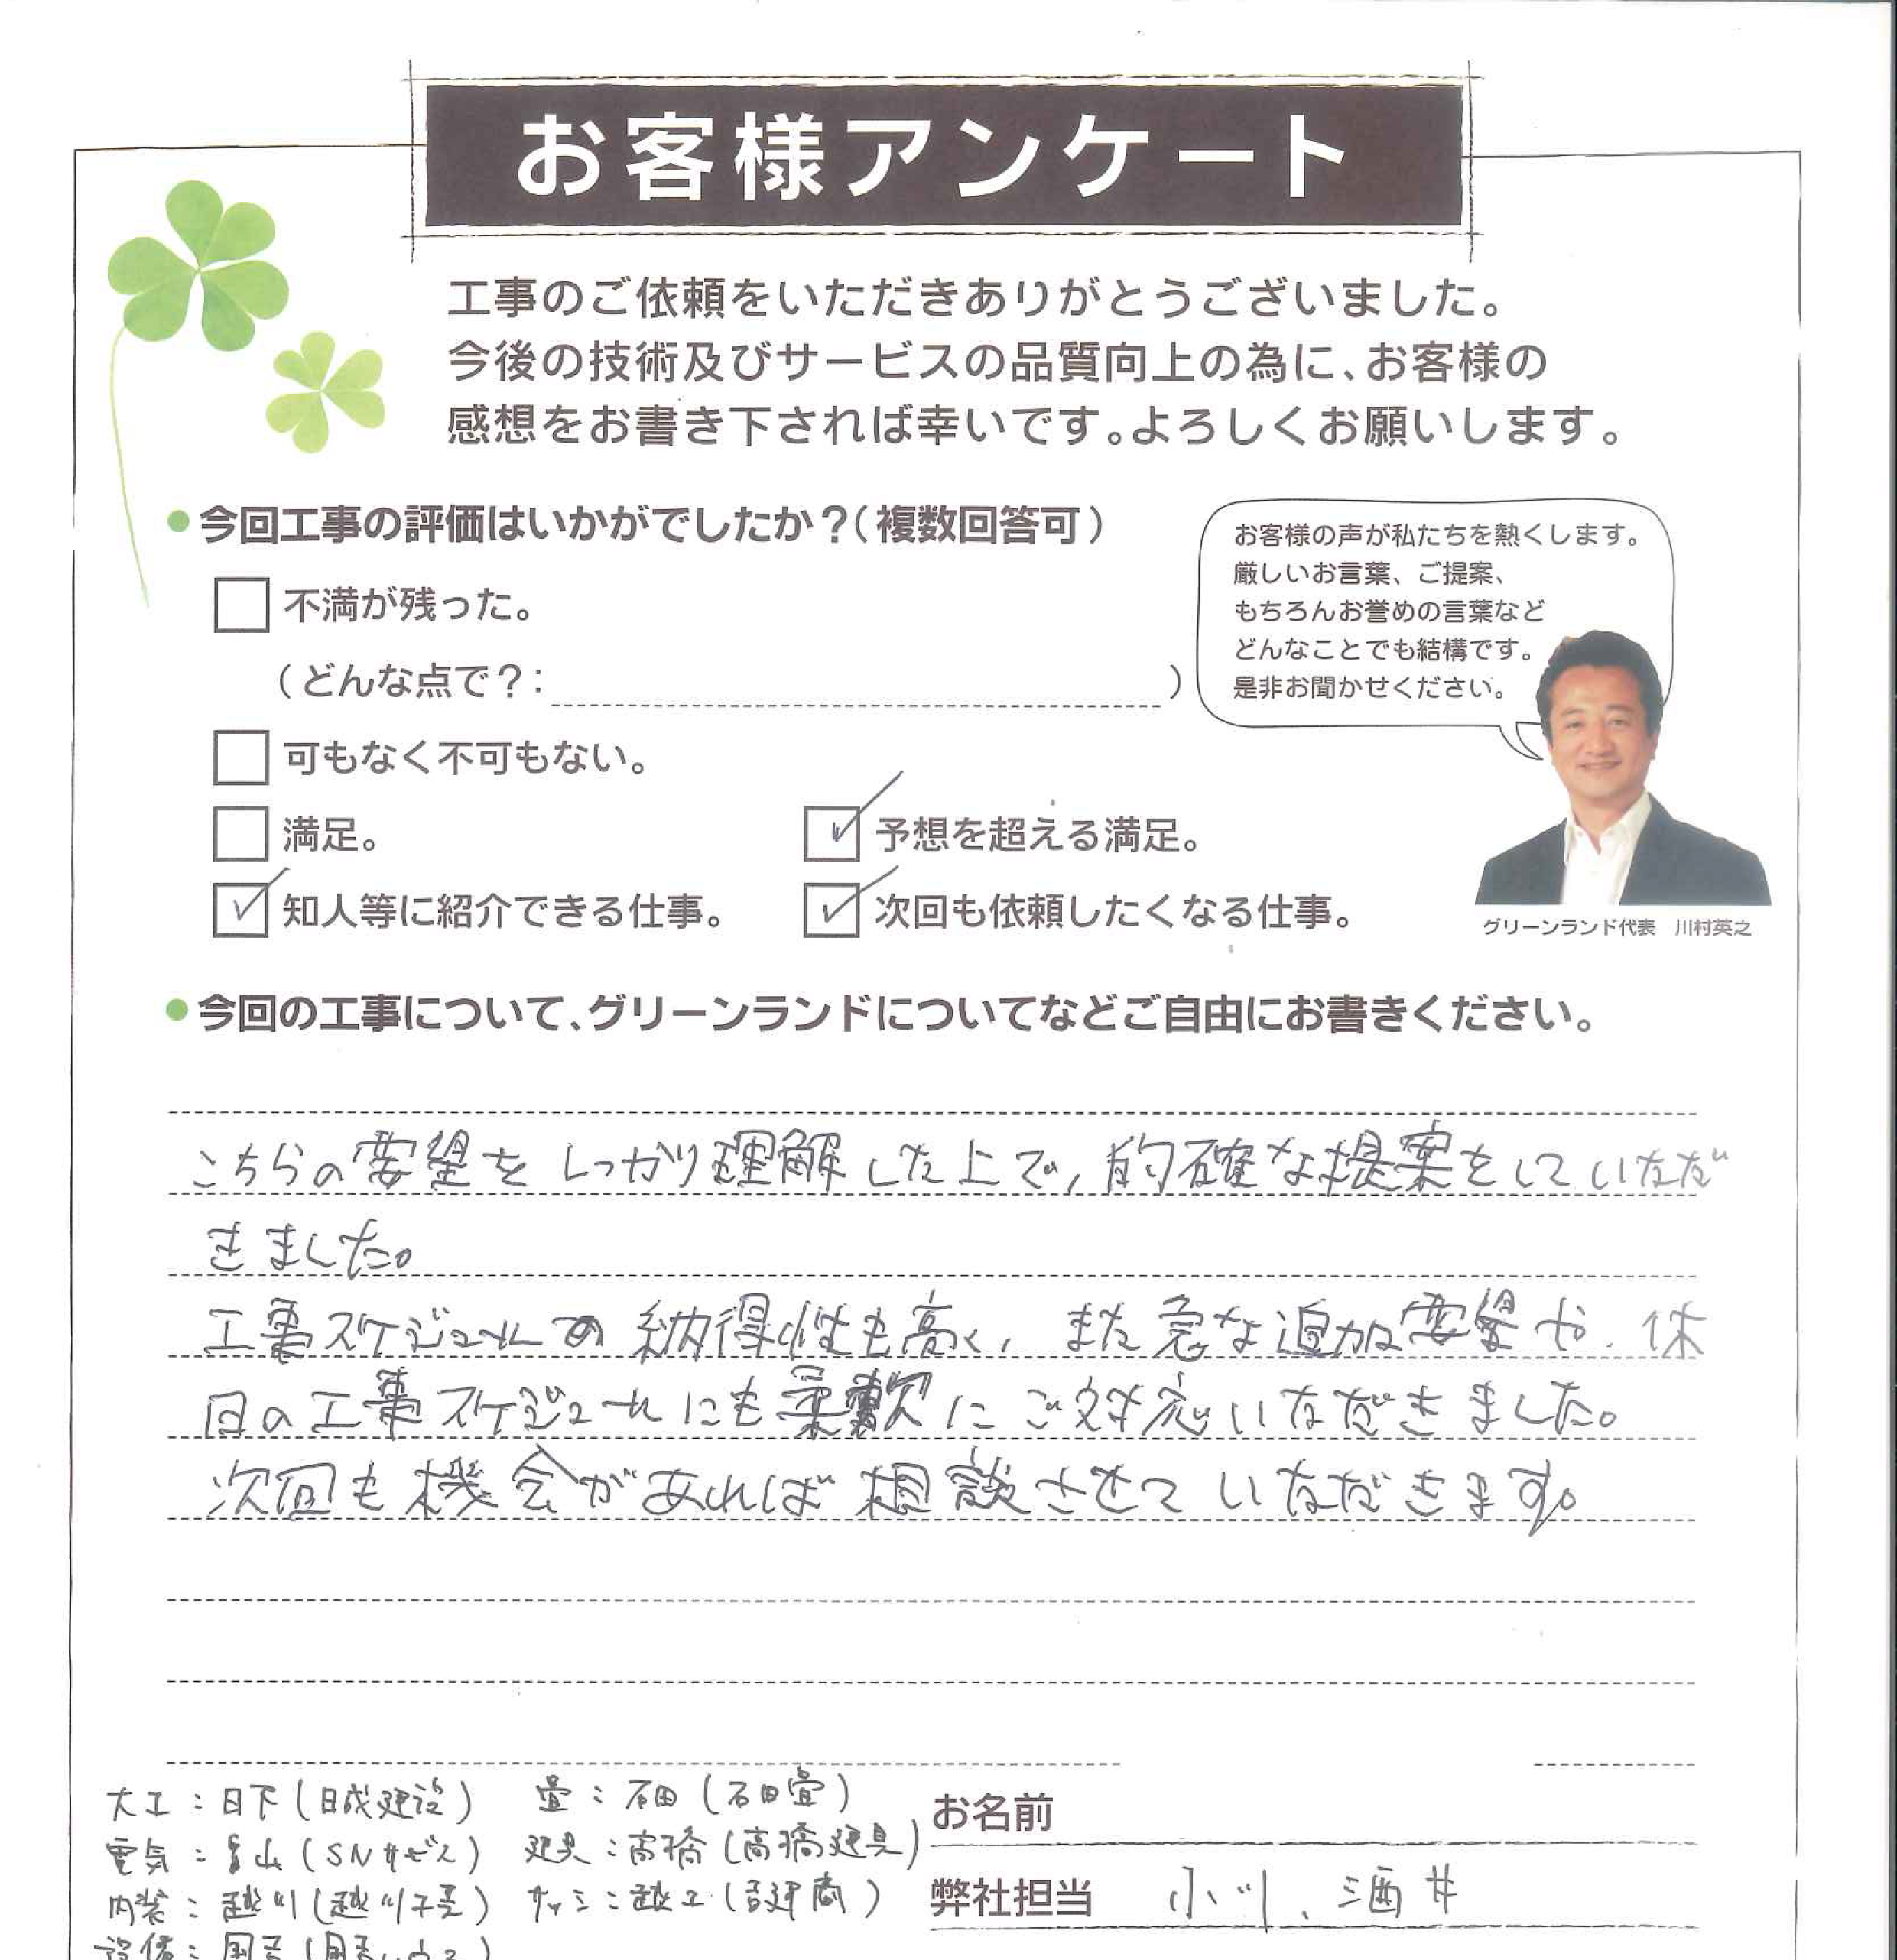 お客様アンケート
工事のご依頼をいただきありがとうございました。
今後の技術及びサービスの品質向上の為に、お客様の
感想をお書き下されば幸いです。よろしくお願いします。
●今回工事の評価はいかがでしたか？（複数回答可）
不満が残った。
（どんな点で？：　　　）
可もなく不可もない。
満足。
予想を超える満足。
知人等に紹介できる仕事。
次回も依頼したくなる仕事。
お客様の声が私たちを熱くします。
厳しいお言葉、ご提案、
もちろんお誉めの言葉など
どんなことでも結構です。
是非お聞かせください。
グリーンランド代表　川村英之
●今回の工事について、グリーンランドについてなどご自由にお書きください。
こちらの要望をしっかり理解した上で、的確な提案をしていただ
きました。
工事スケジュールの納得性も高く、また急な追加要望や、休
日の工事スケジュールにも柔軟にご対応いただきました。
次回も機会があれば相談させていただきます。
大工：日下（日成建設）
電気：山（SNサービス）
内装：越川（越川）
設備：
畳：石田（石田畳）
建具：高橋（高橋建具）
サッシ：
お名前
弊社担当　小川、酒井